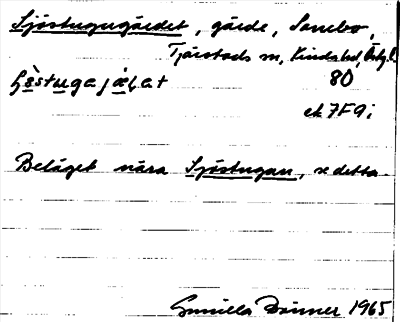 Sjöstugugärdet, gärde, Sanebo,
Tjärstads sn, Kinds hd, Östg. l.
80
ek 7F9i
Beläget nära Sjöstugan, se detta.
Gunilla 1965